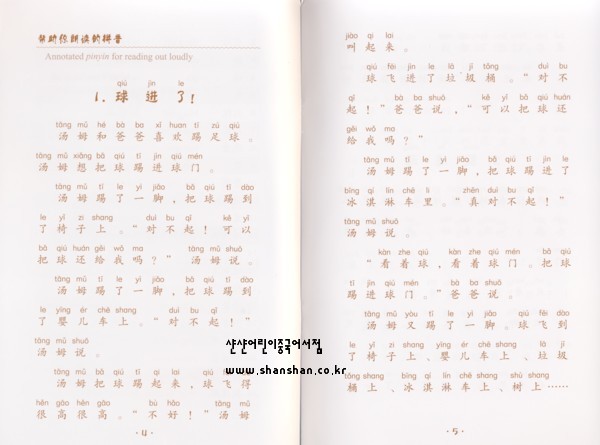 帮助你朗读的拼音
Annotated pinyin for reading out loudly
qiú jìn le
1. 球 进 了!
tāng mǔ hé bà ba xǐ huan tī zú qiú
汤 姆 和 爸 爸 喜 欢 踢 足 球 。
tāng mǔ xiǎng bǎ qiú tī jìn qiú mén
汤 姆 想 把 球 踢 进 球 门 。
tāng mǔ tī le yì jiǎo bǎ qiú tī dào
汤 姆 踢 了 一 脚 , 把 球 踢 到
le yǐ zi shang duì bu qǐ kě yǐ
了 椅 子 上 。 “ 对 不 起 ! 可 以
bǎ qiú huán gěi wǒ ma tāng mǔ shuō
把 球 还 给 我 吗 ? ” 汤 姆 说 。
tāng mǔ tī le yì jiǎo bǎ qiú tī dào
汤 姆 踢 了 一 脚 , 把 球 踢 到
le yīng ér chē shang duì bu qǐ
了 婴 儿 车 上 。 “ 对 不 起 ! ”
tāng mǔ shuō
汤 姆 说 。
tāng mǔ bǎ qiú tī qǐ lai qiú fēi de
汤 姆 把 球 踢 起 来 , 球 飞 得
hěn gāo hěn gāo bù hǎo tāng mǔ
很 高 很 高 。 “ 不 好 ! ” 汤 姆
· 4 ·
jiào qi lai
叫 起 来 。
qiú fēi jìn le lā jī tǒng duì bu
球 飞 进 了 垃 圾 桶 。 “ 对 不
qǐ bà ba shuō kě yǐ bǎ qiú huán
起 ! ” 爸 爸 说 , “ 可 以 把 球 还
gěi wǒ ma
给 我 吗 ? ”
tāng mǔ tī le yì jiǎo bǎ qiú tī jìn le
汤 姆 踢 了 一 脚 , 把 球 踢 进 了
bīng qí lín chē li zhēn duì bu qǐ
冰 淇 淋 车 里 。 “ 真 对 不 起 ! ”
tāng mǔ shuō
汤 姆 说 。
kàn zhe qiú kàn zhe qiú mén bǎ qiú
“ 看 着 球 , 看 着 球 门 。 把 球
tī jìn qiú mén bà ba shuō
踢 进 球 门 。 ” 爸 爸 说 。
tāng mǔ yòu tī le yì jiǎo qiú fēi dào
汤 姆 又 踢 了 一 脚 。 球 飞 到
le yǐ zi shang yīng ér chē shang lā jī
了 椅 子 上 、 婴 儿 车 上 、 垃 圾
tǒng shang bīng qí lín chē shang shù shang
桶 上 、 冰 淇 淋 车 上 、 树 上 ……
· 5 ·
샨샨어린이중국어서점
www.shanshan.co.kr